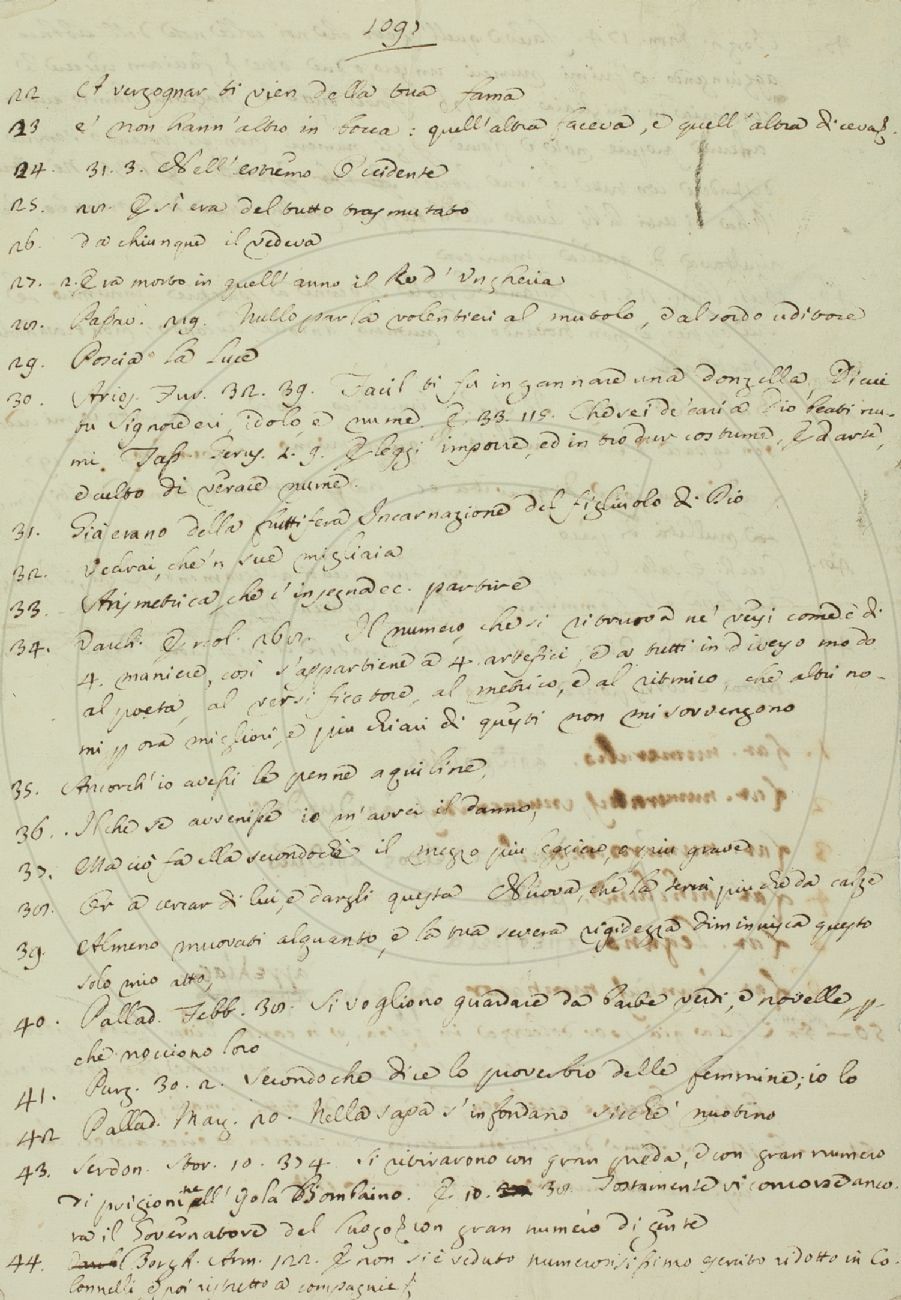 109)
22 Et vergognar ti vien della tua fama
23 e' non hann' altro in bocca: quell' altra faceva, e quell' altra diceva.
24. 31. 3. Nell' estremo Occidente
25. 28. E si era del tutto trasmutato
26. da chiunque il vedeva
27. 2. Era morto in quell' anno il Re d' Ungheria
28. 219. Nullo parla volentieri al mutolo, e al sordo uditore
29. Poscia la luce
30. Arios. Fur. 32. 39. Facil ti fu ingannare una donzella, Di cui
tu Signore eri, idolo, e nume. E 33. 115. Che sei de' cari a Dio beati nu-
mi. Tass. Gerus. 2. 9. E leggi imporre, ed introdur costume, Ed arte,
e culto di verace nume.
31. Già erano della fruttifera Incarnazione del figliuolo di Dio
32. Vedrai, che 'n sue migliaia
33. Arismetrica, che c' insegna ec. partire
34. Varch. Ercol. 262. Il numero, che si ritruova ne' versi come è di
4. maniere, così s' appartiene a 4. artefici, e a tutti in diverso modo
al poeta, al versificatore, al metrico, e al ritmico, che altri no-
mi p ora migliori, e più chiari di questi non mi sovvengono
35. Ancorch' io avessi le penne aquiline,
36. Il che se avvenisse io m' avrei il danno,
37. Ma ciò fa ella secondochè il mezzo più leggiero, o più grave
38. Or a cercar di lui, e dargli questa Nuova, che la terrà più che da calze
39. Almeno muovati alquanto, e la tua severa rigidezza diminuisca questo
solo mio atto,
40. Pallad. Febb. 38. Si vogliono guardare da barbe verdi, e novelle, p
che nocciono loro
41. Purg. 30. 2. Secondo che dice lo proverbio delle femmine; io lo
42 Pallad. Marz. 20. Nella sapa s' infondano sicchè nuotino
43. Serdon. Stor. 10. 374. Si ritirarono con gran preda, e con gran numero
di prigioni nell' Isola Bombaino. E 10. 38. Tostamente vi concorse anco-
ra il Governatore del luogo con gran numero di gente
44. Borgh. Arm. 122. E non si è veduto numerosissimo esercito ridotto in Co-
lonnelli, e poi ristretto a compagnie